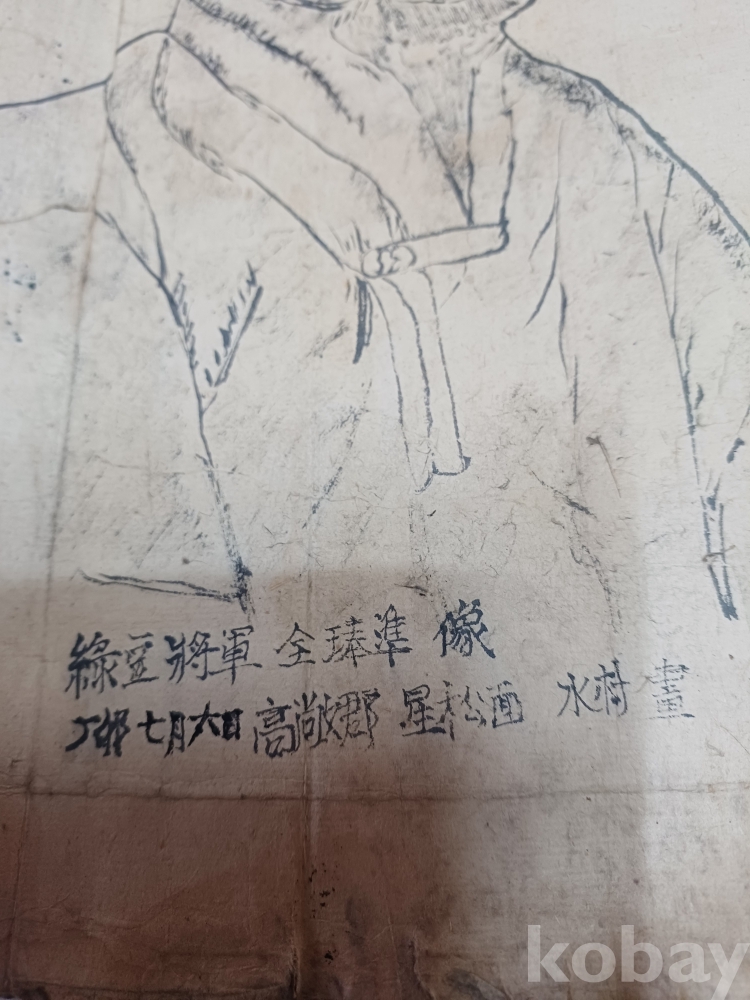 綠豆將軍 全琫準 像
丁卯 七月六日 高敞郡 星松面 水村 畫
kobay